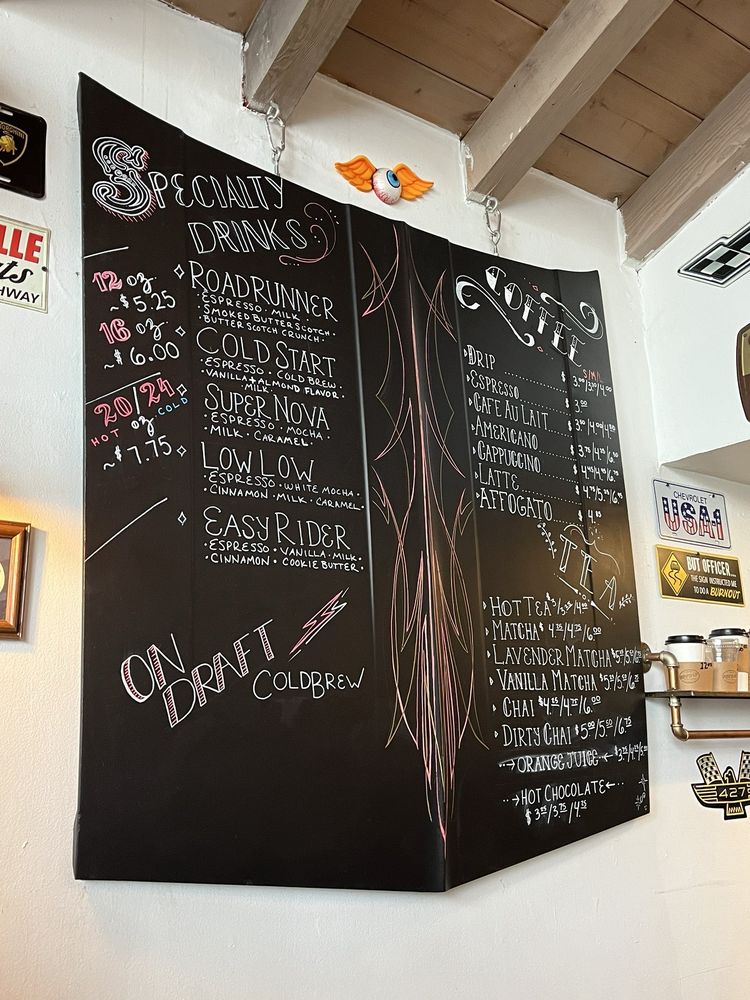 SPECIALTY
DRINKS
12 oz
~$5.25
16 oz
~$6.00
20/24 oz
HOT COLD
~$7.75
ROADRUNNER
ESPRESSO · MILK
SMOKED BUTTERSCOTCH ·
BUTTERSCOTCH CRUNCH ·
COLD START
· ESPRESSO · COLD BREW ·
VANILLA + ALMOND FLAVOR ·
MILK ·
SUPER NOVA
· ESPRESSO · MOCHA ·
· MILK · CARAMEL ·
LOW LOW
· ESPRESSO · WHITE MOCHA ·
· CINNAMON · MILK · CARAMEL ·
EASY RIDER
· ESPRESSO · VANILLA · MILK ·
· CINNAMON · COOKIE BUTTER ·
ON
DRAFT
COLDBREW
COFFEE
DRIP
ESPRESSO
CAFE AU LAIT
AMERICANO
CAPPUCCINO
LATTE
AFFOGATO
TEA
HOT TEA
MATCHA $4.25/4.75/6.00
LAVENDER MATCHA
VANILLA MATCHA
CHAI $4.25/4.75/6.00
DIRTY CHAI $5.00/5.50/6.75
→ ORANGE JUICE ←
→ HOT CHOCOLATE ←
LLE
HWAY
CHEVROLET
USA1
BUT OFFICER...
THE SIGN INSTRUCTED ME
TO DO A BURNOUT
427